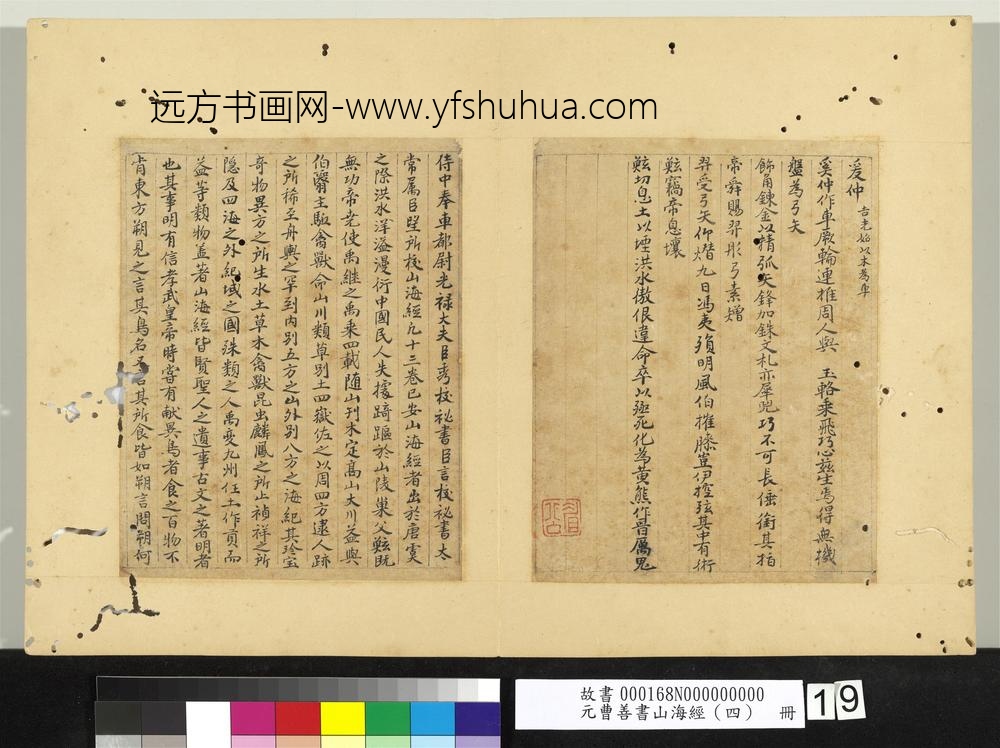 远方书画网-www.yfshuhua.com
爰仲 吉光始以木為車
奚仲作車厥輪連推周人輿 玉輅乘飛巧心茲生焉得無機
盤為弓矢
飾角鍊金以精弧矢鋒加銖文札亦犀兕巧不可長倕銜其指
帝舜賜羿彤弓素矰
羿受弓矢仰熸九日馮夷殞明風伯摧膝豈伊控弦其中有術
鮌竊帝息壤
鮌切息土以堙洪水傲佷違命卒以殛死化為黃熊作晉厲鬼
侍中奉車都尉光祿大夫臣秀校祕書臣言校祕書太
常属臣望所校山海經凡十三卷已安山海經者出於唐虞
之際洪水洋溢漫衍中國民人失據踦𨄅於山陵巢父鮌既
無功帝堯使禹繼之禹乘四載随山刊木定高山大川益與
伯翳主駈禽獸命山川類草別土四嶽佐之以周四方逮人跡
之所稀至舟輿之罕到内別五方之山外別八方之海紀其珍宝
奇物異方之所生水土草木禽獸昆虫麟鳳之所止禎祥之所
隠及四海之外絕域之國殊類之人禹变九州任土作貢而
益等類物盖著山海經皆賢聖人之遺事古文之著明者
也其事明有信孝武皇帝時甞有献異鳥者食之百物不
肯東方朔見之言其鳥名又言其所食皆如朔言問朔何
故書 000168N000000000
元曹善書山海經（四） 冊
19